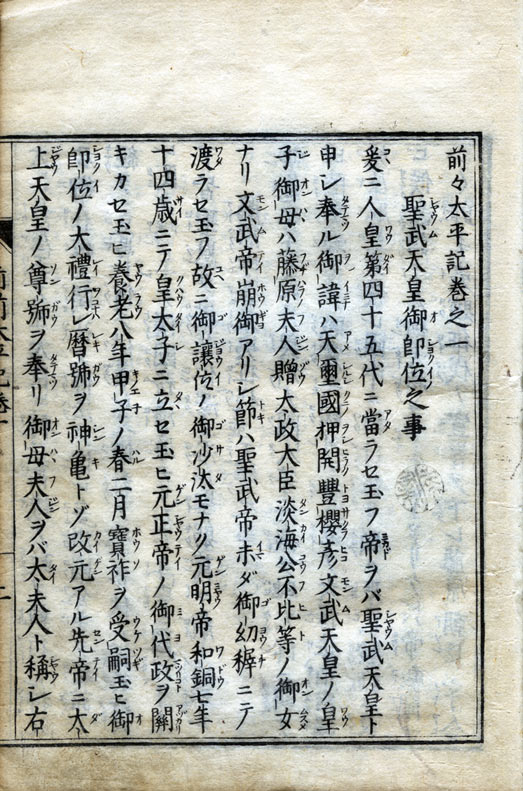 前々太平記巻之一
聖武天皇御即位之事
爰ニ人皇第四十五代ニ當ラセ玉フ帝ヲバ聖武天皇ト
申シ奉ル御諱ハ天璽國押開豐櫻彦文武天皇ノ皇
子御母ハ藤原夫人贈大政大臣淡海公不比等ノ御女
ナリ文武帝崩御アリシ節ハ聖武帝未ダ御幼穉ニテ
渡ラセ玉フ故ニ御讓位ノ御沙汰モナク元明帝和銅七年
十四歳ニテ皇太子ニ立セ玉ヒ元正帝ノ御代政ヲ關
キカセ玉ヒ養老八年甲子ノ春二月寳祚ヲ受嗣玉ヒ御
即位ノ大禮行レ暦號ヲ神亀トゾ改元アル先帝ニ太
上天皇ノ尊號ヲ奉リ御母夫人ヲバ太夫人ト稱シ右